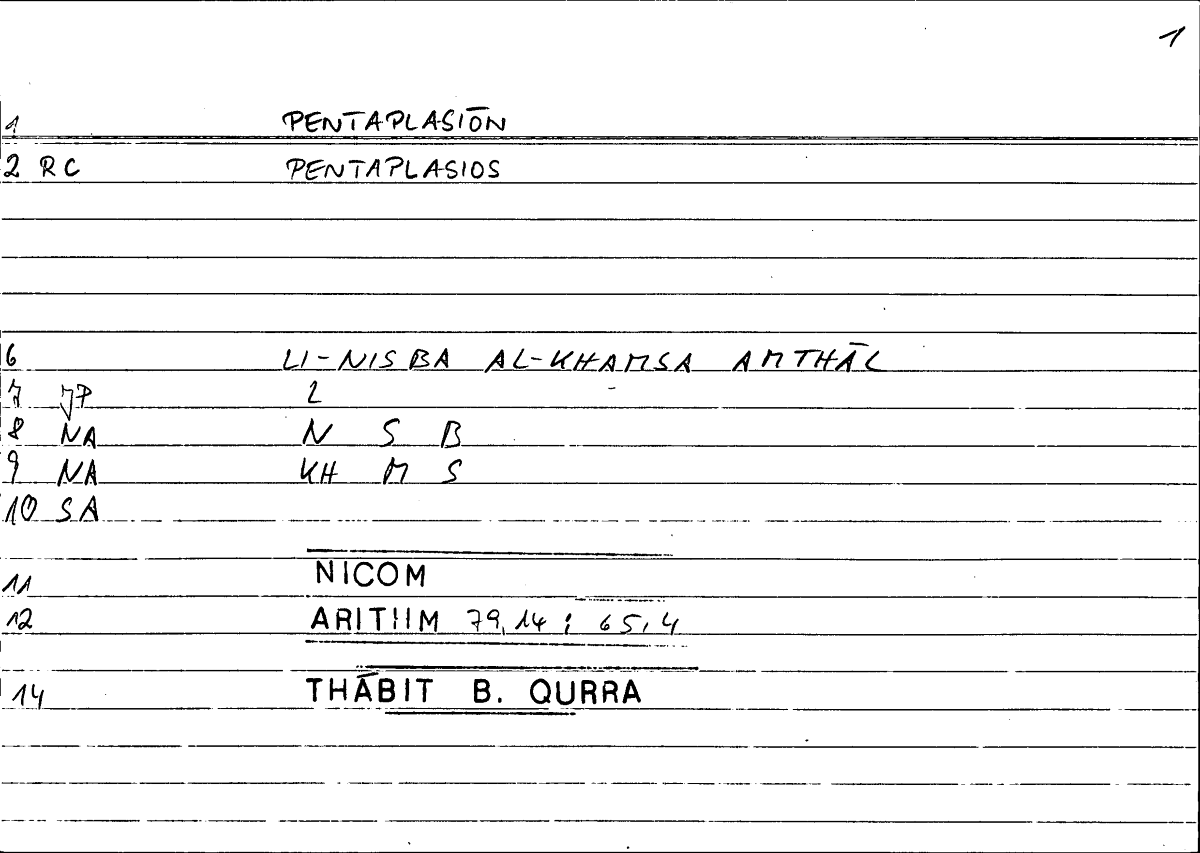 1
1 PENTAPLASIŌN
2 RC PENTAPLASIOS
6 LI-NISBA AL-KHAMSA AMTHĀL
7 JP 2
8 NA N S B
9 NA KH M S
10 SA
11 NICOM
12 ARITHM 79,14 ; 65,4
14 THĀBIT B. QURRA